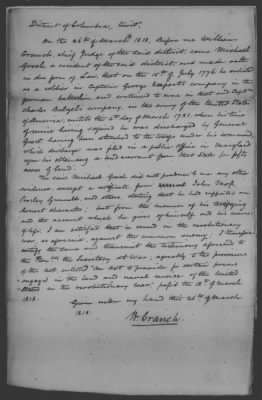 District of Columbia, towit,
On the 26th of March 1818, Before me William
Cranch, chief Judge of the said district, came Michael
a resident of the said district, and made oath
in due form of Law, that on the 15th of July 1776 he enlisted
as a soldier in Captain George company in the
german battalion, and continued to was in that and Capt
Charles company, in the army of the United States
of America, until the 2d day of March 1781, when his time
of service having expired he was discharged by General
Gist, having been attached to the troops under his command,
which discharge was filed in a public office in Maryland
upon his obtaining a land warrant from that State for fifty
acres of land.
The said Michael did not produce to me any other
evidence, except a certificate from John
and others, stating that he had supported an
honest character; but from the manner of his testifying
and the account which he gives of himself and his course
of life, I am satisfied that he served in the revolutionary
war, as aforesaid, against the common enemy. I therefore
certify the same and transmit the testimony aforesaid to
the Honble the Secretary at War, agreeably to the provisions
of the act, entitled "An act to provide for certain persons
engaged in the land and naval service of the United
States in the revolutionary war," passed the 18th of march
1818.
Given under my hand this 26th of March
1818.
W. Cranch.